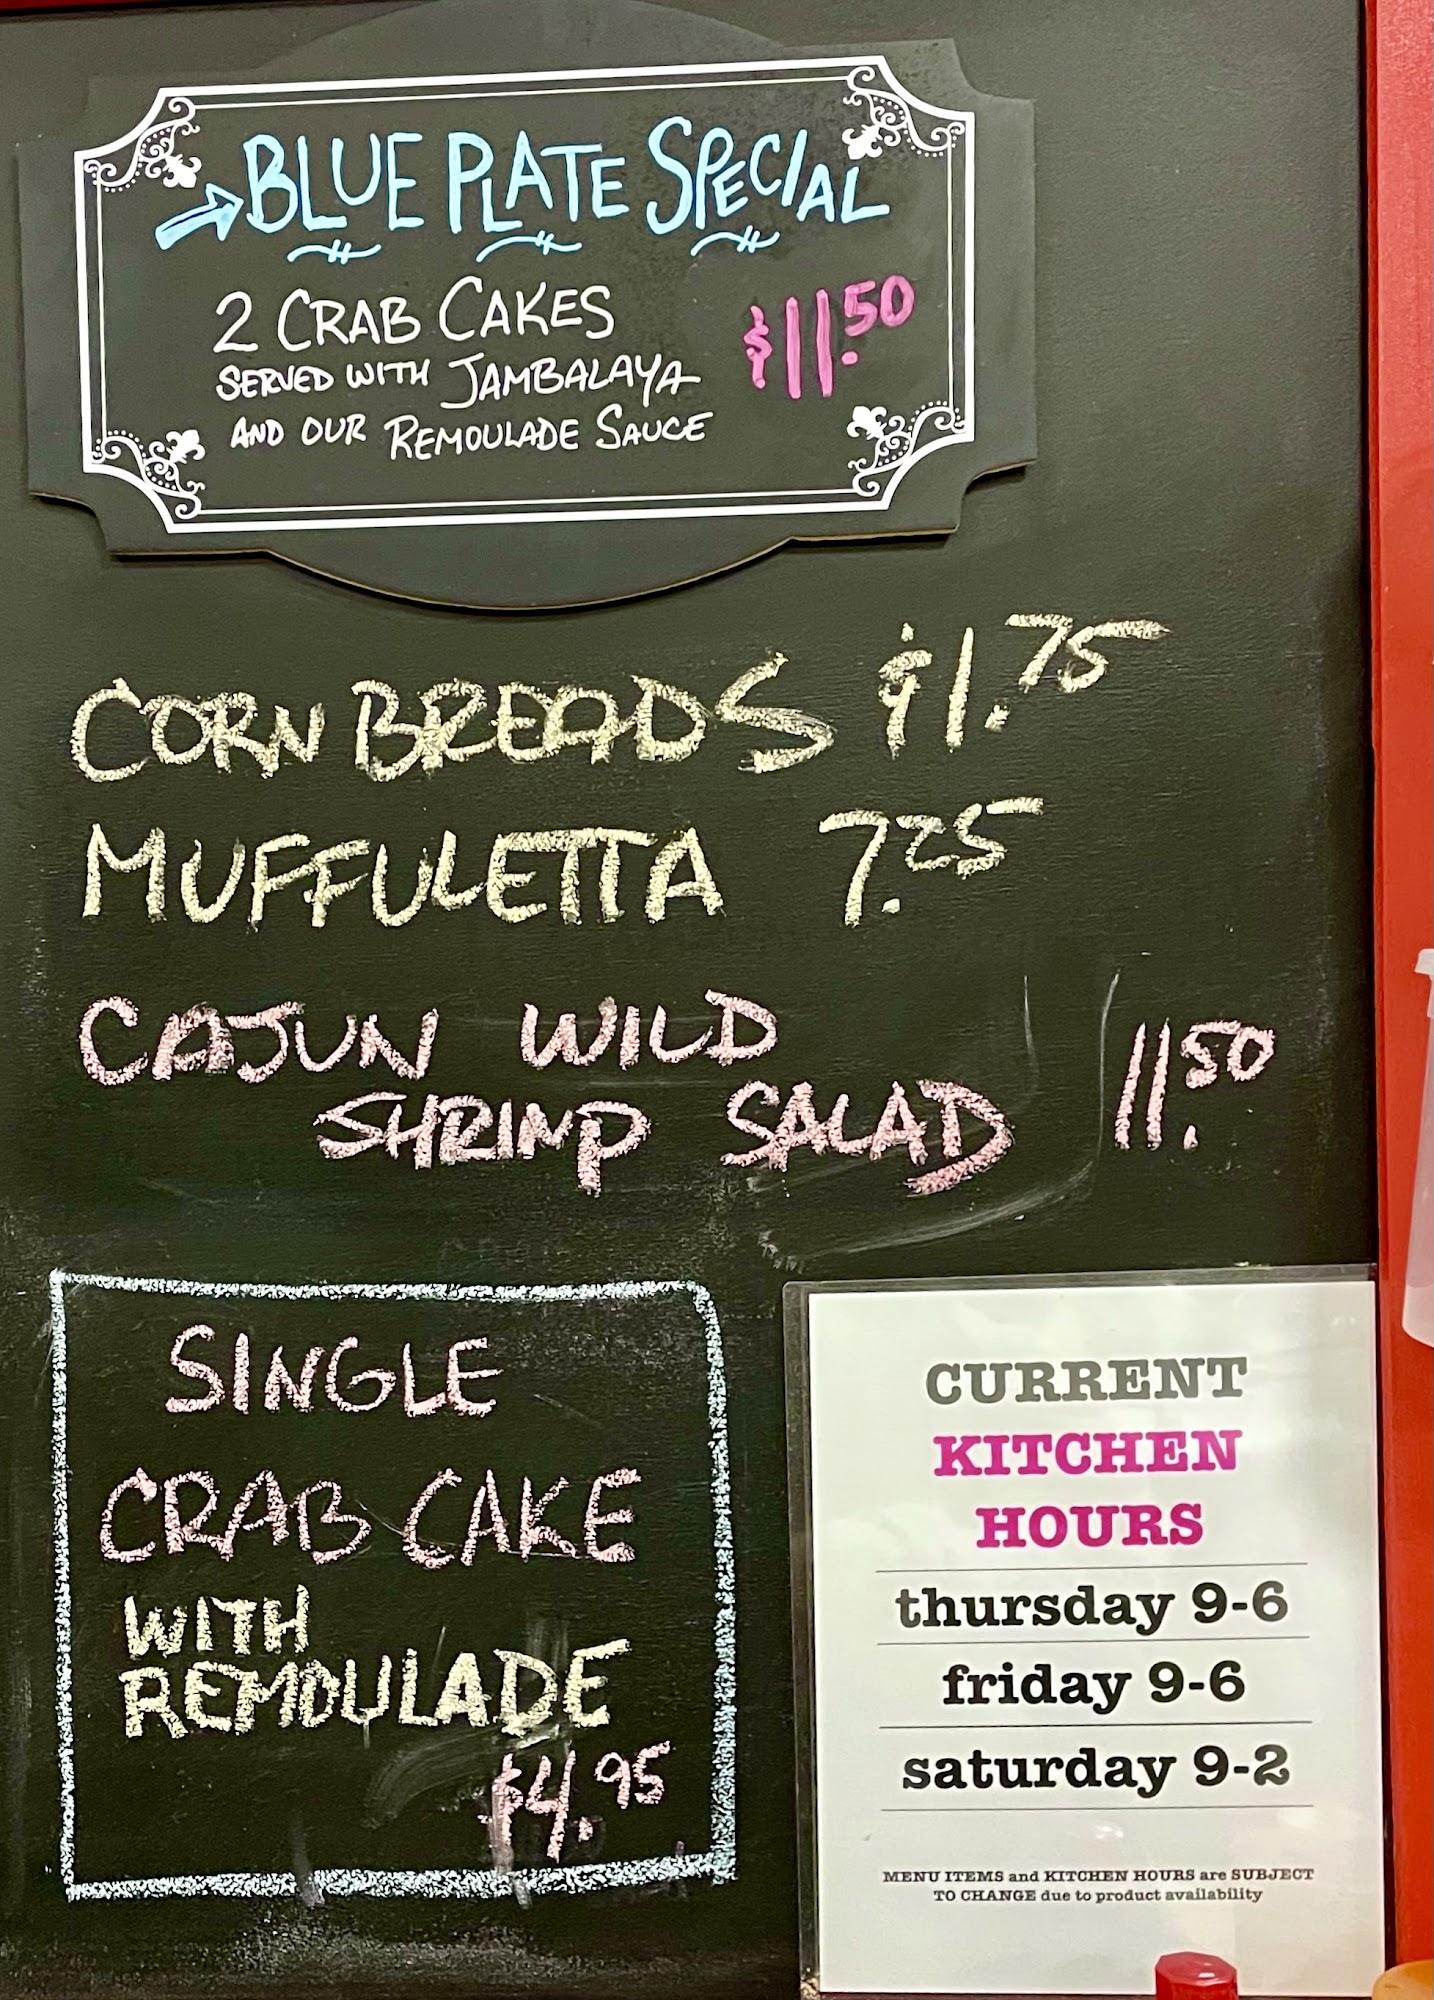 BLUE PLATE SPECIAL
2 CRAB CAKES $11.50
SERVED WITH JAMBALAYA
AND OUR REMOULADE SAUCE
CORN BREADS $1.75
MUFFULETTA 7.25
CAJUN WILD
SHRIMP SALAD 11.50
SINGLE
CRAB CAKE
WITH
REMOULADE
$4.95
CURRENT
KITCHEN
HOURS
thursday 9-6
friday 9-6
saturday 9-2
MENU ITEMS and KITCHEN HOURS are SUBJECT
TO CHANGE due to product availability